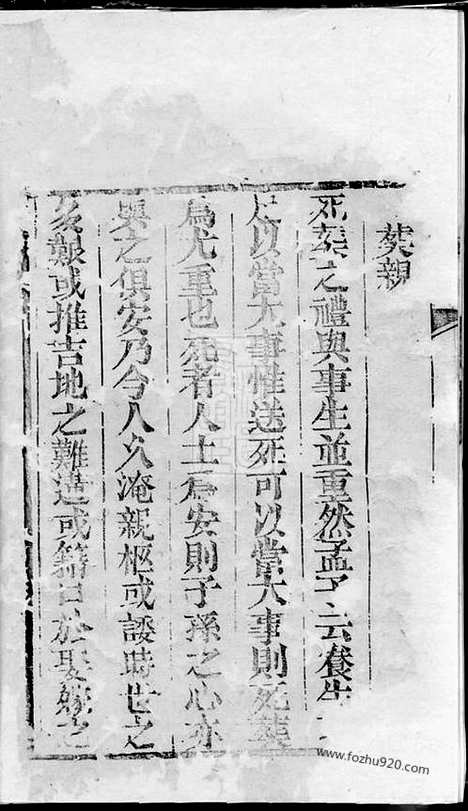 葬親
死葬之禮與事生並重然孟子云養生
足以當大事惟送死可以當大事則死葬
為尤重也死者入土為安則子孫之心亦
與之俱安乃今人久淹親柩或諉時世之
艱或推吉地之難遘或藉口於
www.fozhu920.com